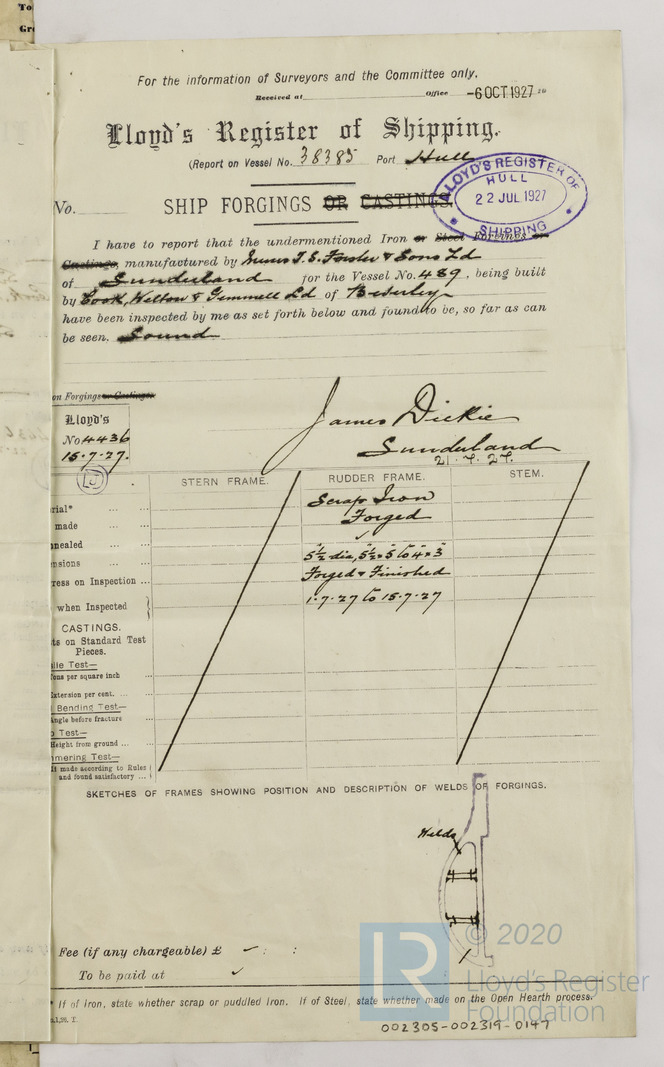 To
Gre
For the information of Surveyors and the Committee only.
Received at Office -6 OCT 1927 19
Lloyd's Register of Shipping.
(Report on Vessel No. 38385 Port Hull
LLOYD'S REGISTER OF SHIPPING
HULL
22 JUL 1927
No. SHIP FORGINGS OR CASTINGS.
I have to report that the undermentioned Iron or Steel Forgings or
Castings, manufactured by Messrs T. S. Forster & Sons Ld
of Sunderland for the Vessel No. 489, being built
by Cook, Welton & Gemmell Ld of Beverley
have been inspected by me as set forth below and found to be, so far as can
be seen. Sound
on Forgings or Castings.
Lloyd's
No 4436
15.7.27.
James Dickie
Sunderland
21.7.27.
STERN FRAME. RUDDER FRAME. STEM.
rial* ... ... Scrap Iron
made ... Forged
nealed ... ... ✓
nsions ... 5½ dia, 5½ × 5 to 4 × 3
ress on Inspection ... Forged & Finished
when Inspected 1.7.27 to 15.7.27
CASTINGS.
ts on Standard Test
Pieces.
ile Test—
Tons per square inch ...
Extension per cent. ... ...
Bending Test—
Angle before fracture ...
p Test—
Height from ground ... ...
mmering Test—
If made according to Rules
and found satisfactory ...
SKETCHES OF FRAMES SHOWING POSITION AND DESCRIPTION OF WELDS OF FORGINGS.
Welds
Fee (if any chargeable) £ ✓ : :
To be paid at ✓
* If of Iron, state whether scrap or puddled Iron. If of Steel, state whether made on the Open Hearth process.
LR
© 2020
Lloyd's Register
Foundation
002305-002319-0147